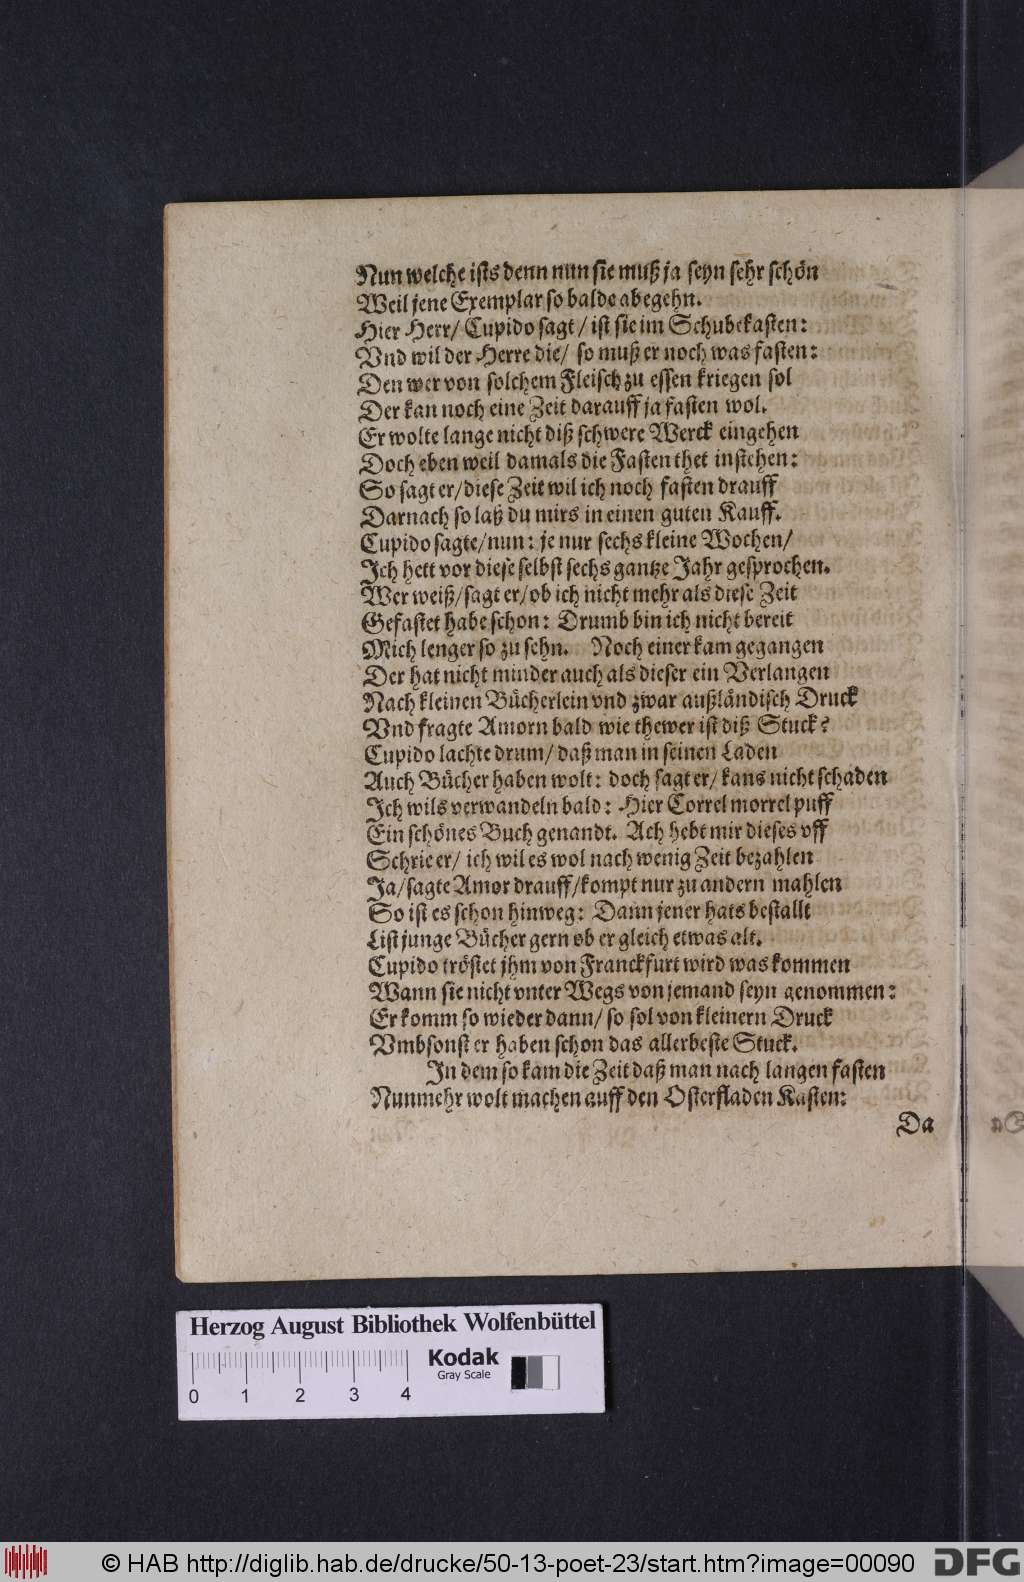 Nun welche ists denn nun sie muß ja seyn sehr schön
Weil jene Exemplar so balde abegehn.
Hier Herr/ Cupido sagt/ ist sie im Schubekasten:
Vnd wil der Herre die/ so muß er noch was fasten:
Den wer von solchem Fleisch zu essen kriegen sol
Der kan noch eine Zeit darauff ja fasten wol.
Er wolte lange nicht diß schwere Werck eingehen
Doch eben weil damals die Fasten thet instehen:
So sagt er/ diese Zeit wil ich noch fasten drauff
Darnach so laß du mirs in einen guten Kauff.
Cupido sagte/ nun: je nur sechs kleine Wochen/
Ich hett vor diese selbst sechs gantze Jahr gesprochen.
Wer weiß/ sagt er/ ob ich nicht mehr als diese Zeit
Gefastet habe schon: Drumb bin ich nicht bereit
Mich lenger so zu sehn. Noch einer kam gegangen
Der hat nicht minder auch als dieser ein Verlangen
Nach kleinen Bücherlein vnd zwar außländisch Druck
Vnd fragte Amorn bald wie thewer ist diß Stuck?
Cupido lachte drum/ daß man in seinen Laden
Auch Bücher haben wolt: doch sagt er/ kans nicht schaden
Ich wils verwandeln bald: Hier Correl morrel puff
Ein schönes Buch genandt. Ach hebt mir dieses vff
Schrie er/ ich wil es wol nach wenig Zeit bezahlen
Ja/ sagte Amor drauff/ kompt nur zu andern mahlen
So ist es schon hinweg: Dann jener hats bestallt
List junge Bücher gern ob er gleich etwas alt.
Cupido tröstet jhm von Franckfurt wird was kommen
Wann sie nicht vnter Wegs von jemand seyn genommen:
Er komm so wieder dann/ so sol von kleinern Druck
Vmbsonst er haben schon das allerbeste Stuck.
In dem so kam die Zeit daß man nach langen fasten
Nunmehr wolt machen auff den Osterfladen Kasten:
Da
Herzog August Bibliothek Wolfenbüttel
Kodak
Gray Scale
0 1 2 3 4
© HAB http://diglib.hab.de/drucke/50-13-poet-23/start.htm?image=00090
DFG